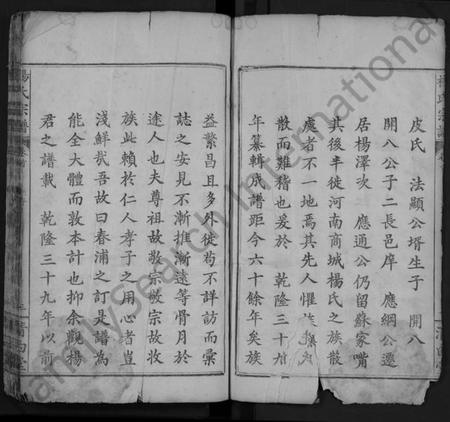 皮氏 法顯公壻生子 開八
開八公子二長邑庠 應綱公遷
居楊澤㳄 應通公仍留蘇家嘴
其後半徙河南商城楊氏之族散
處者不一地焉其先人懼
散而難稽也爰於 乾隆三十
年纂輯成譜距今六十餘年矣族
益繁昌且多外徙苟不詳訪而彙
誌之安見不漸推漸遠等骨月於
途人也夫尊祖故敬宗敬宗故收
族此賴於仁人孝子之用心者豈
淺鮮哉吾故曰春浦之訂是譜為
能全大體而敦本計也抑余觀楊
君之譜載 乾隆三十九年以前
楊氏宗譜
FamilySearch International